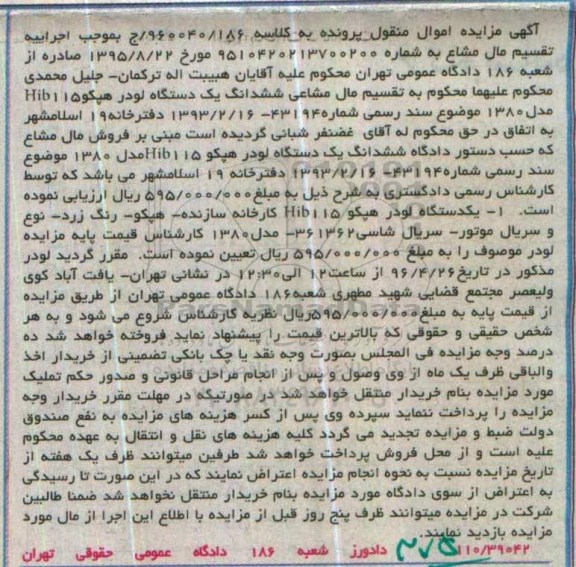 آگهی مزایده اموال منقول پرونده به کلاسه ۹۶۰۰۴۰/۱۸۶/ج بموجب اجراییه
تقسیم مال مشاع به شماره ۹۵۱۰۴۲۰۲۱۳۷۰۰۲۰۰ مورخ ۱۳۹۵/۸/۲۲ صادره از
شعبه ۱۸۶ دادگاه عمومی تهران محکوم علیه آقایان هبیبت اله ترکمان- جلیل محمدی
محکوم علیهما محکوم به تقسیم مال مشاعی ششدانگ یک دستگاه لودر هپکو Hib۱۱۵
مدل۱۳۸۰ موضوع سند رسمی شماره۴۳۱۹۴- ۱۳۹۳/۲/۱۶ دفترخانه۱۹ اسلامشهر
به اتفاق در حق محکوم له آقای غضنفر شبانی گردیده است مبنی بر فروش مال مشاع
که حسب دستور دادگاه ششدانگ یک دستگاه لودر هپکو Hib۱۱۵مدل ۱۳۸۰ موضوع
سند رسمی شماره۴۳۱۹۴- ۱۳۹۳/۲/۱۶ دفترخانه ۱۹ اسلامشهر می باشد که توسط
کارشناس رسمی دادگستری به شرح ذیل به مبلغ ۵۹۵/۰۰۰/۰۰۰ ریال ارزیابی نموده
است. ۱- یکدستگاه لودر هپکو Hib۱۱۵ کارخانه سازنده- هپکو- رنگ زرد- نوع
و سریال موتور- سریال شاسی۳۶۱۳۶۲- مدل۱۳۸۰ کارشناس قیمت پایه مزایده
لودر موصوف را به مبلغ ۵۹۵/۰۰۰/۰۰۰ ریال تعیین نموده است. مقرر گردید لودر
مذکور در تاریخ۹۶/۴/۲۶ از ساعت۱۲ الی۱۲:۳۰ در نشانی تهران- یافت آباد کوی
ولیعصر مجتمع قضایی شهید مطهری شعبه۱۸۶ دادگاه عمومی تهران از طریق مزایده
از قیمت پایه به مبلغ۵۹۵/۰۰۰/۰۰۰ریال نظریه کارشناس شروع می شود و به هر
شخص حقیقی و حقوقی که بالاترین قیمت را پیشنهاد نماید فروخته خواهد شد ده
درصد وجه مزایده فی المجلس بصورت وجه نقد یا چک بانکی تضمینی از خریدار اخذ
والباقی ظرف یک ماه از وی وصول و پس از انجام مراحل قانونی و صدور حکم تملیک
مورد مزایده بنام خریدار منتقل خواهد شد در صورتیکه در مهلت مقرر خریدار وجه
مزایده را پرداخت ننماید سپرده وی پس از کسر هزینه های مزایده به نفع صندوق
دولت ضبط و مزایده تجدید می گردد کلیه هزینه های نقل و انتقال به عهده محکوم
علیه است و از محل فروش پرداخت خواهد شد طرفین میتوانند ظرف یک هفته از
تاریخ مزایده نسبت به نحوه انجام مزایده اعتراض نمایند که در این صورت تا رسیدگی
به اعتراض از سوی دادگاه مورد مزایده بنام خریدار منتقل نخواهد شد ضمنا طالبین
شرکت در مزایده میتوانند ظرف پنج روز قبل از مزایده با اطلاع این اجرا از مال مورد
مزایده بازدید نمایند.
۱۱۰/۳۹۰۴۲ دادورز شعبه ۱۸۶ دادگاه عمومی حقوقی تهران